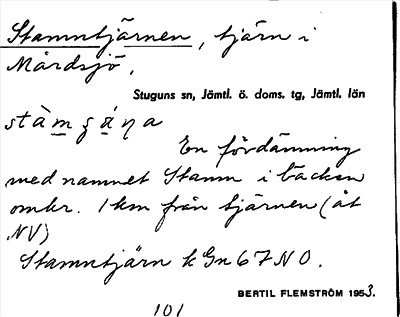 Stamntjärnen, tjärn i
Mårdsjö.
Stuguns sn, Jämtl. ö. doms. tg, Jämtl. län
En fördämning
med namnet Stamm i bäcken
omkr. 1 km från tjärnen (åt
NV)
Stamntjärn k Gn 67 NO.
BERTIL FLEMSTRÖM 1953.
101